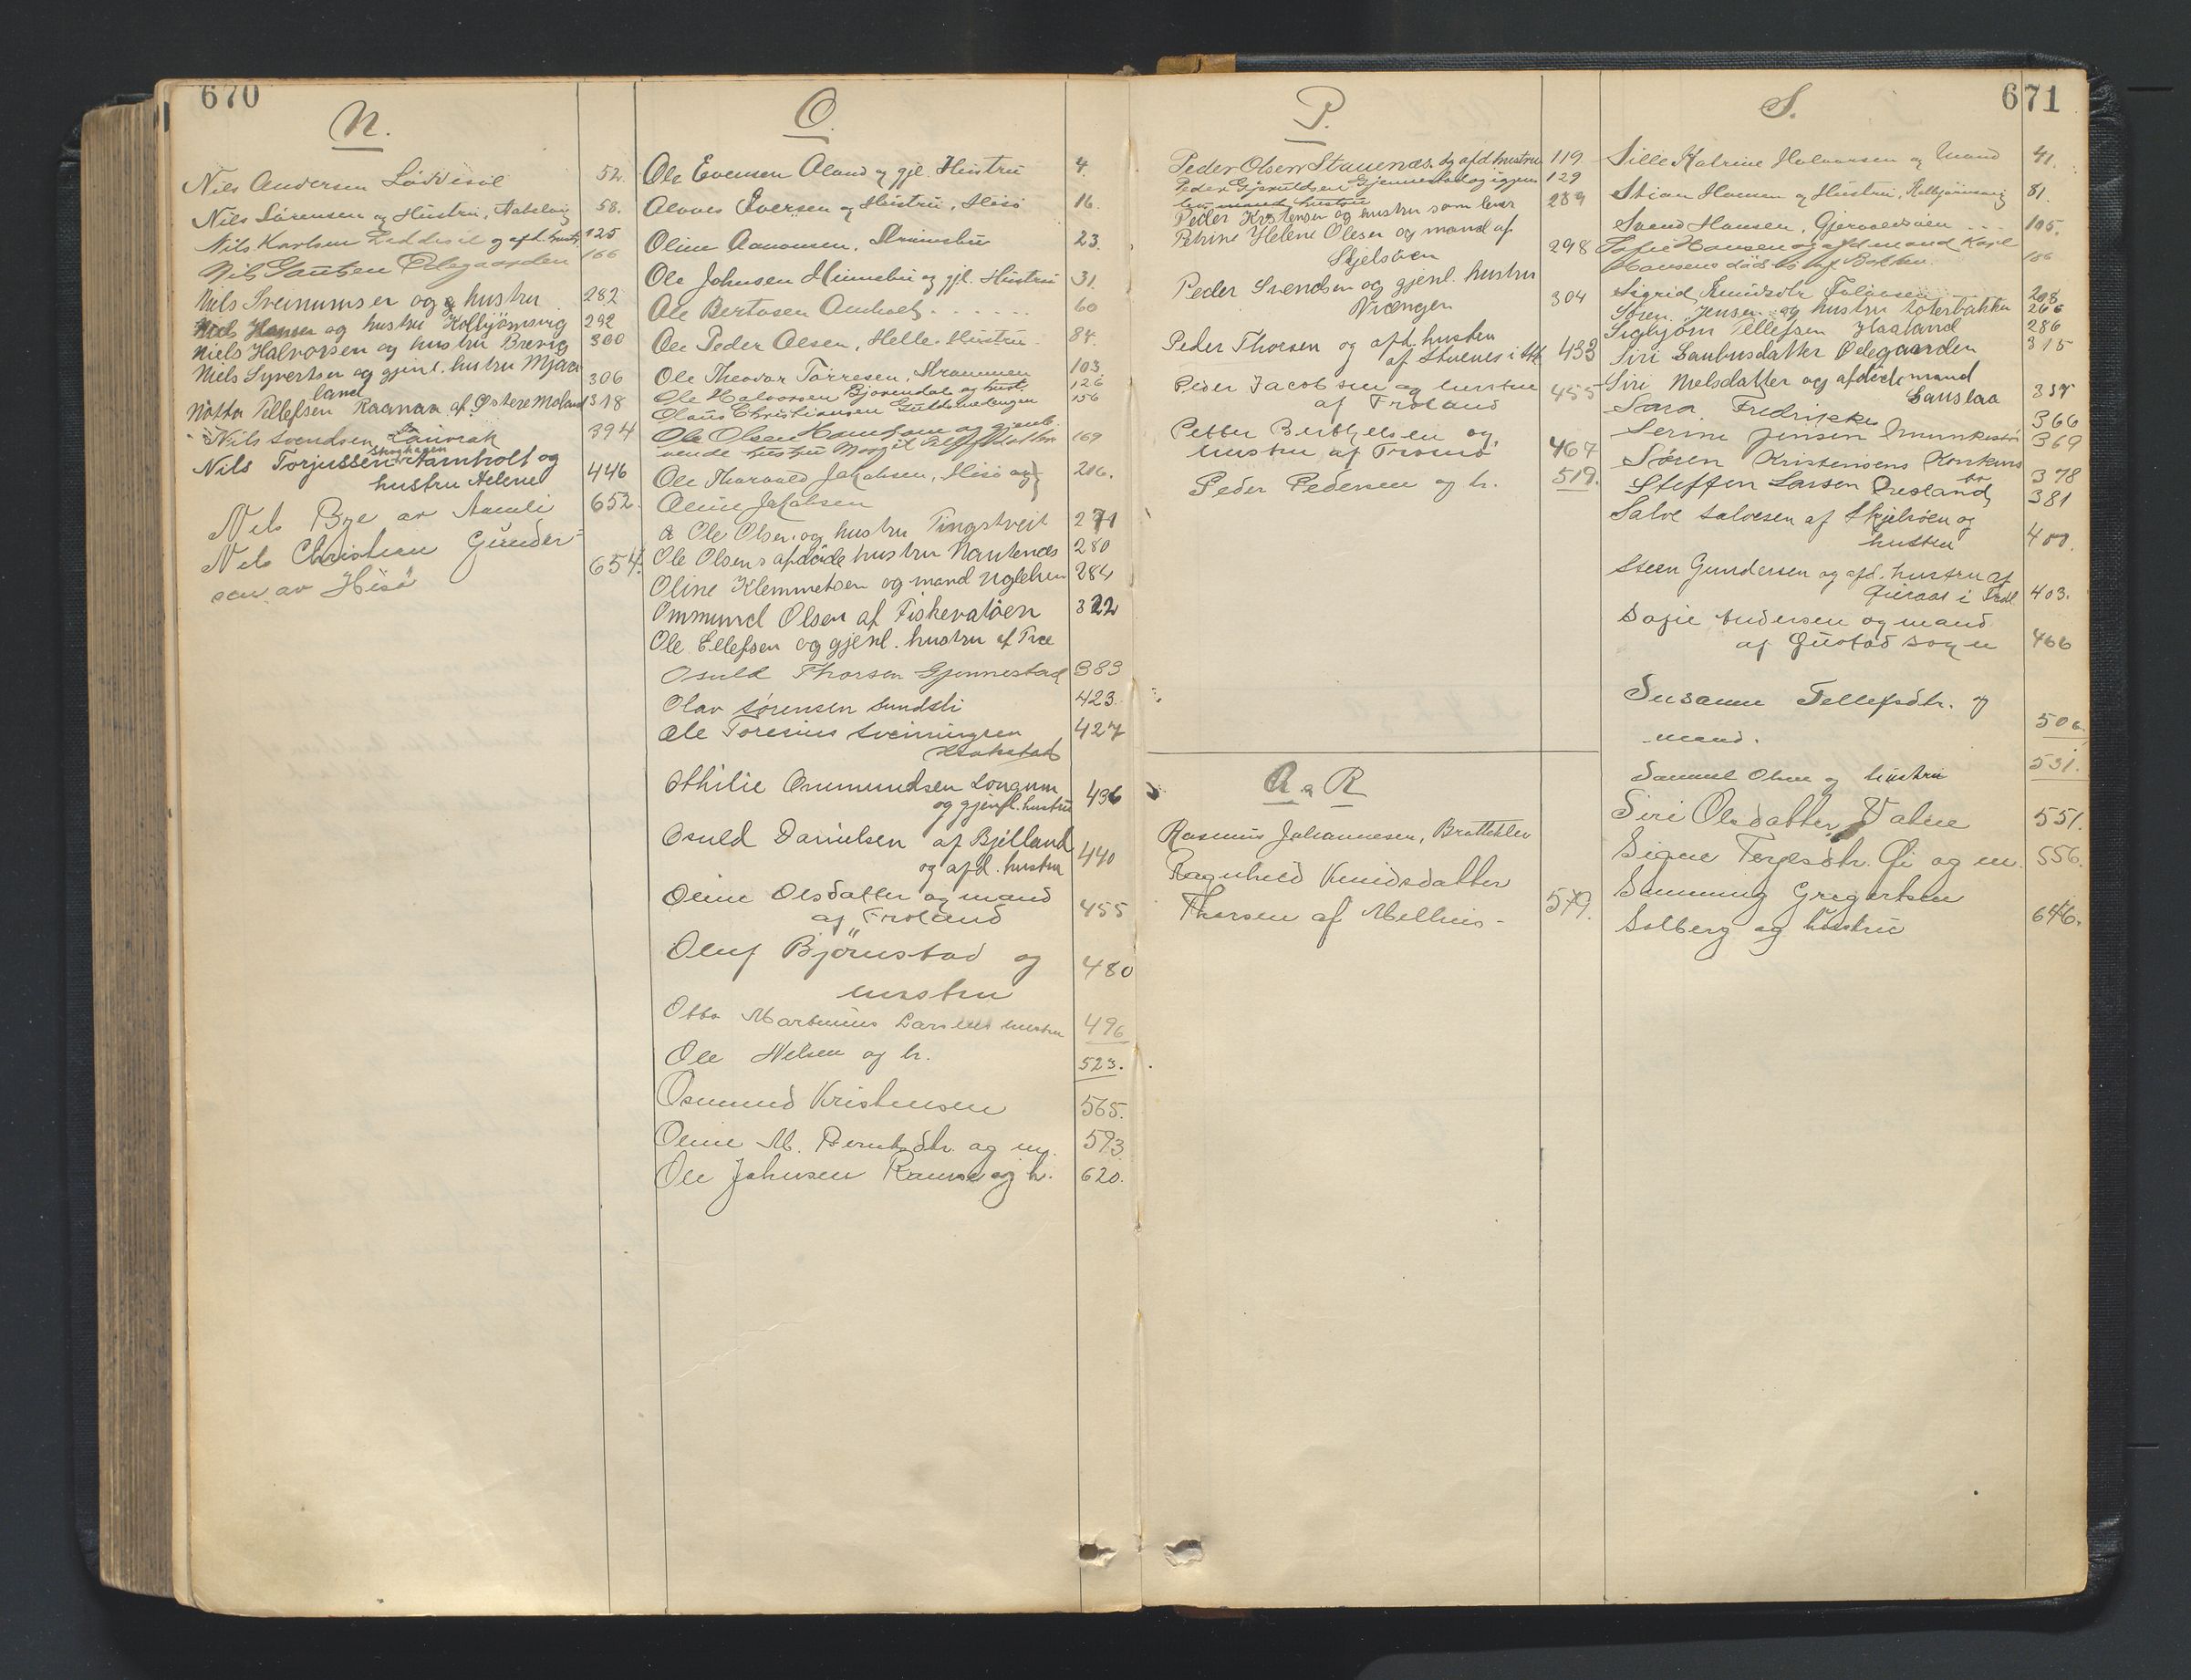 670
N.
Nils Andersen Løddesøl 52.
Nils Sörensen og Hustru, 58.
Nils Karlsen Leddesøl og afd. hustr. 125
Nils Ødegaarden 166
Niels Sveinunsen og hustru 282
Niels Hansen og hustru Kolbjørnsvig 292
Niels Halvorsen og hustru Brevig 300
Niels Syvertsen og gjenl. hustru Mjaa
land 306
Tellefsen af Østere Moland 318
Nils Svendsen Lauvrak 394
Skoghagen
Nils Torjussen Mamholt og
hustru Helene 446
Nils Bye av Aamli 652.
Nils Christian Gunder-
sen av Hisö 654.
O.
Ole Evensen Aland og gjl. Hustru 4.
Iversen og Hustru, Hisö 16.
Oline Aanonsen, 23.
Ole Johnsen og gjl. Hustru 31.
Ole Bertosen 60
Ole Peder Olsen, Helle. Hustru 84.
Ole Theodor Tørresen, Strømmen 103.
Ole Halvorsen Bjorendal og hust. 126
Olaus Christiansen 156
Ole Olsen og gjenle-
vende hustru 169
Ole Thorvald Jakobsen, Hisö og 216.
Oline Jakobsen
Ole Olsen og hustru Tingstveit 271
Ole Olsens afdøde hustru Nautenes 280
Oline Klemmetsen og mand Uglehus 284
Ommund Olsen af Fiskevatøen 322
Ole Ellefsen og gjenl. hustru af Træ
Osuld Thorsen Gjennestad 383
Olav Sørensen Sundsli 423.
Ole Toresius Sveinungsen 427
Othilie Ommundsen Longum
og gjenl. hustru 436
Osuld Danielsen af Bjelland
og afd. hustru 440
Oline Olsdatter og mand
af Froland 455
Oluf Björnstad og
hustru 480
Otto Martinius Larsens hustru 496
Ole Nelsen og h. 523.
Osmund Kristensen 565.
Oline M. Berntsdtr. og m. 593.
Ole Johnsen og h. 620.
671
P.
Peder Olsen Stauenæs. og afd. hustru 119
Peder Gjeruldsen Gjennestad og igjen 129
levende hustru
Peder Kristensen og hustru som lever 289
Petrine Helene Olesen og mand af
Skjelsøen 298
Peder Svendsen og gjenl. hustru
Vrængen 304
Peder Thorsen og afd. hustru
af Stuenes i 433
Peder Jacobsen og hustru
af Froland 455
Petter Berthelsen og
hustru af Tromø 467
Peder Pedersen og h. 519.
Q & R
Rasmus Johannesen, Bratteklev
Ragnhild Knudsdatter
Thorsen af Mellius- 579.
S.
Sille Katrine Halvorsen og Mand 41.
Stian Hansen og Hustru, Kolbjörnsvig 81.
Svend Hansen, 105.
Sofie Hansen og afd mand Karl
Hansens dödsbo 186
Sigrid Knudsdtr 208
Søren Jensen og hustru Loterbakken 266
Sigbjørn Tellefsen Haaland 286
Siri Saubusdatter Ødegaarden 315
Siri Nielsdatter og afdøde mand
Sauslaa 337
Sara Fredrikke 366
Serine Jensen 369
Søren Kristensens Konkurs
bo 378
Steffen Larsen 381
Salve Salvesen af Skjelsøen og
hustru
Steen Gundersen og afd. hustru af
i Frol. 403.
Sofie Andersen og mand
af Øiestad sogn 466
Susanne Tellefsdtr. og
mand. 506.
Samuel Olsen og hustru 531.
Siri Olsdatter 551.
Signe Terjesdtr. og m. 556.
Gregertsen
Solberg og hustru 646.